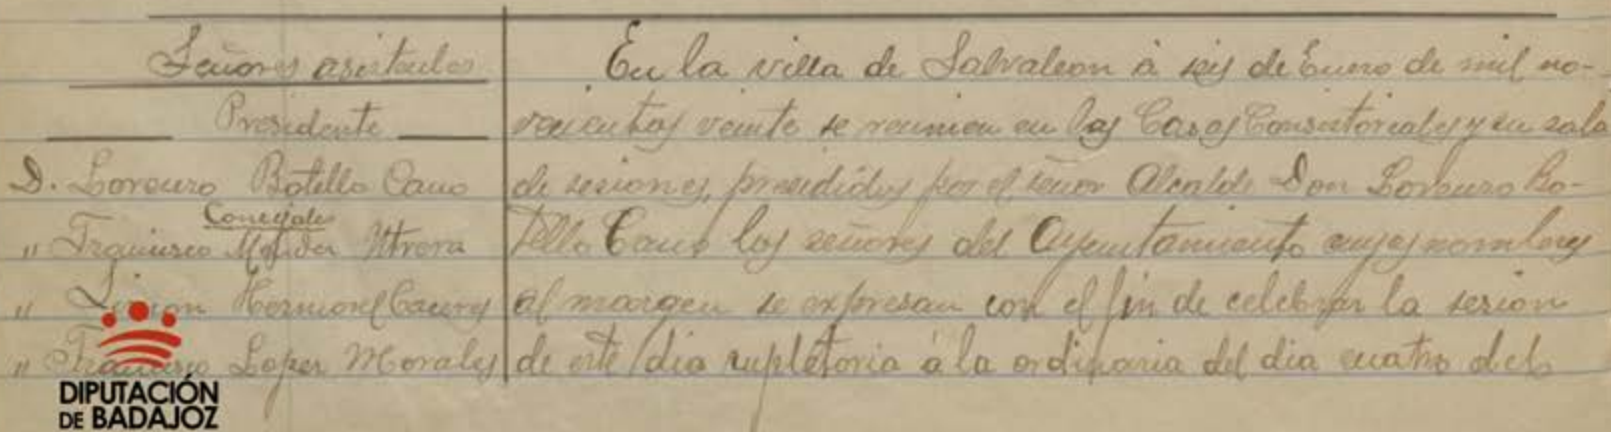 Señores asistentes
Presidente
D. Lorenzo Botello Cano
Concejales
" Francisco Utrera
" Simon Hermosel
" Francisco Lopez Morales
En la villa de Salvaleon à seis de Enero de mil no-
vecientos veinte se reunien en las Casas Consistoriales y en sala
de sesiones, presididos por el señor Alcalde Don Lorenzo Bo-
tello Cano los señores del Ayuntamiento cuyos nombres
al margen se expresan con el fin de celebrar la sesion
de este dia supletoria á la ordinaria del dia cuatro del
DIPUTACIÓN
DE BADAJOZ